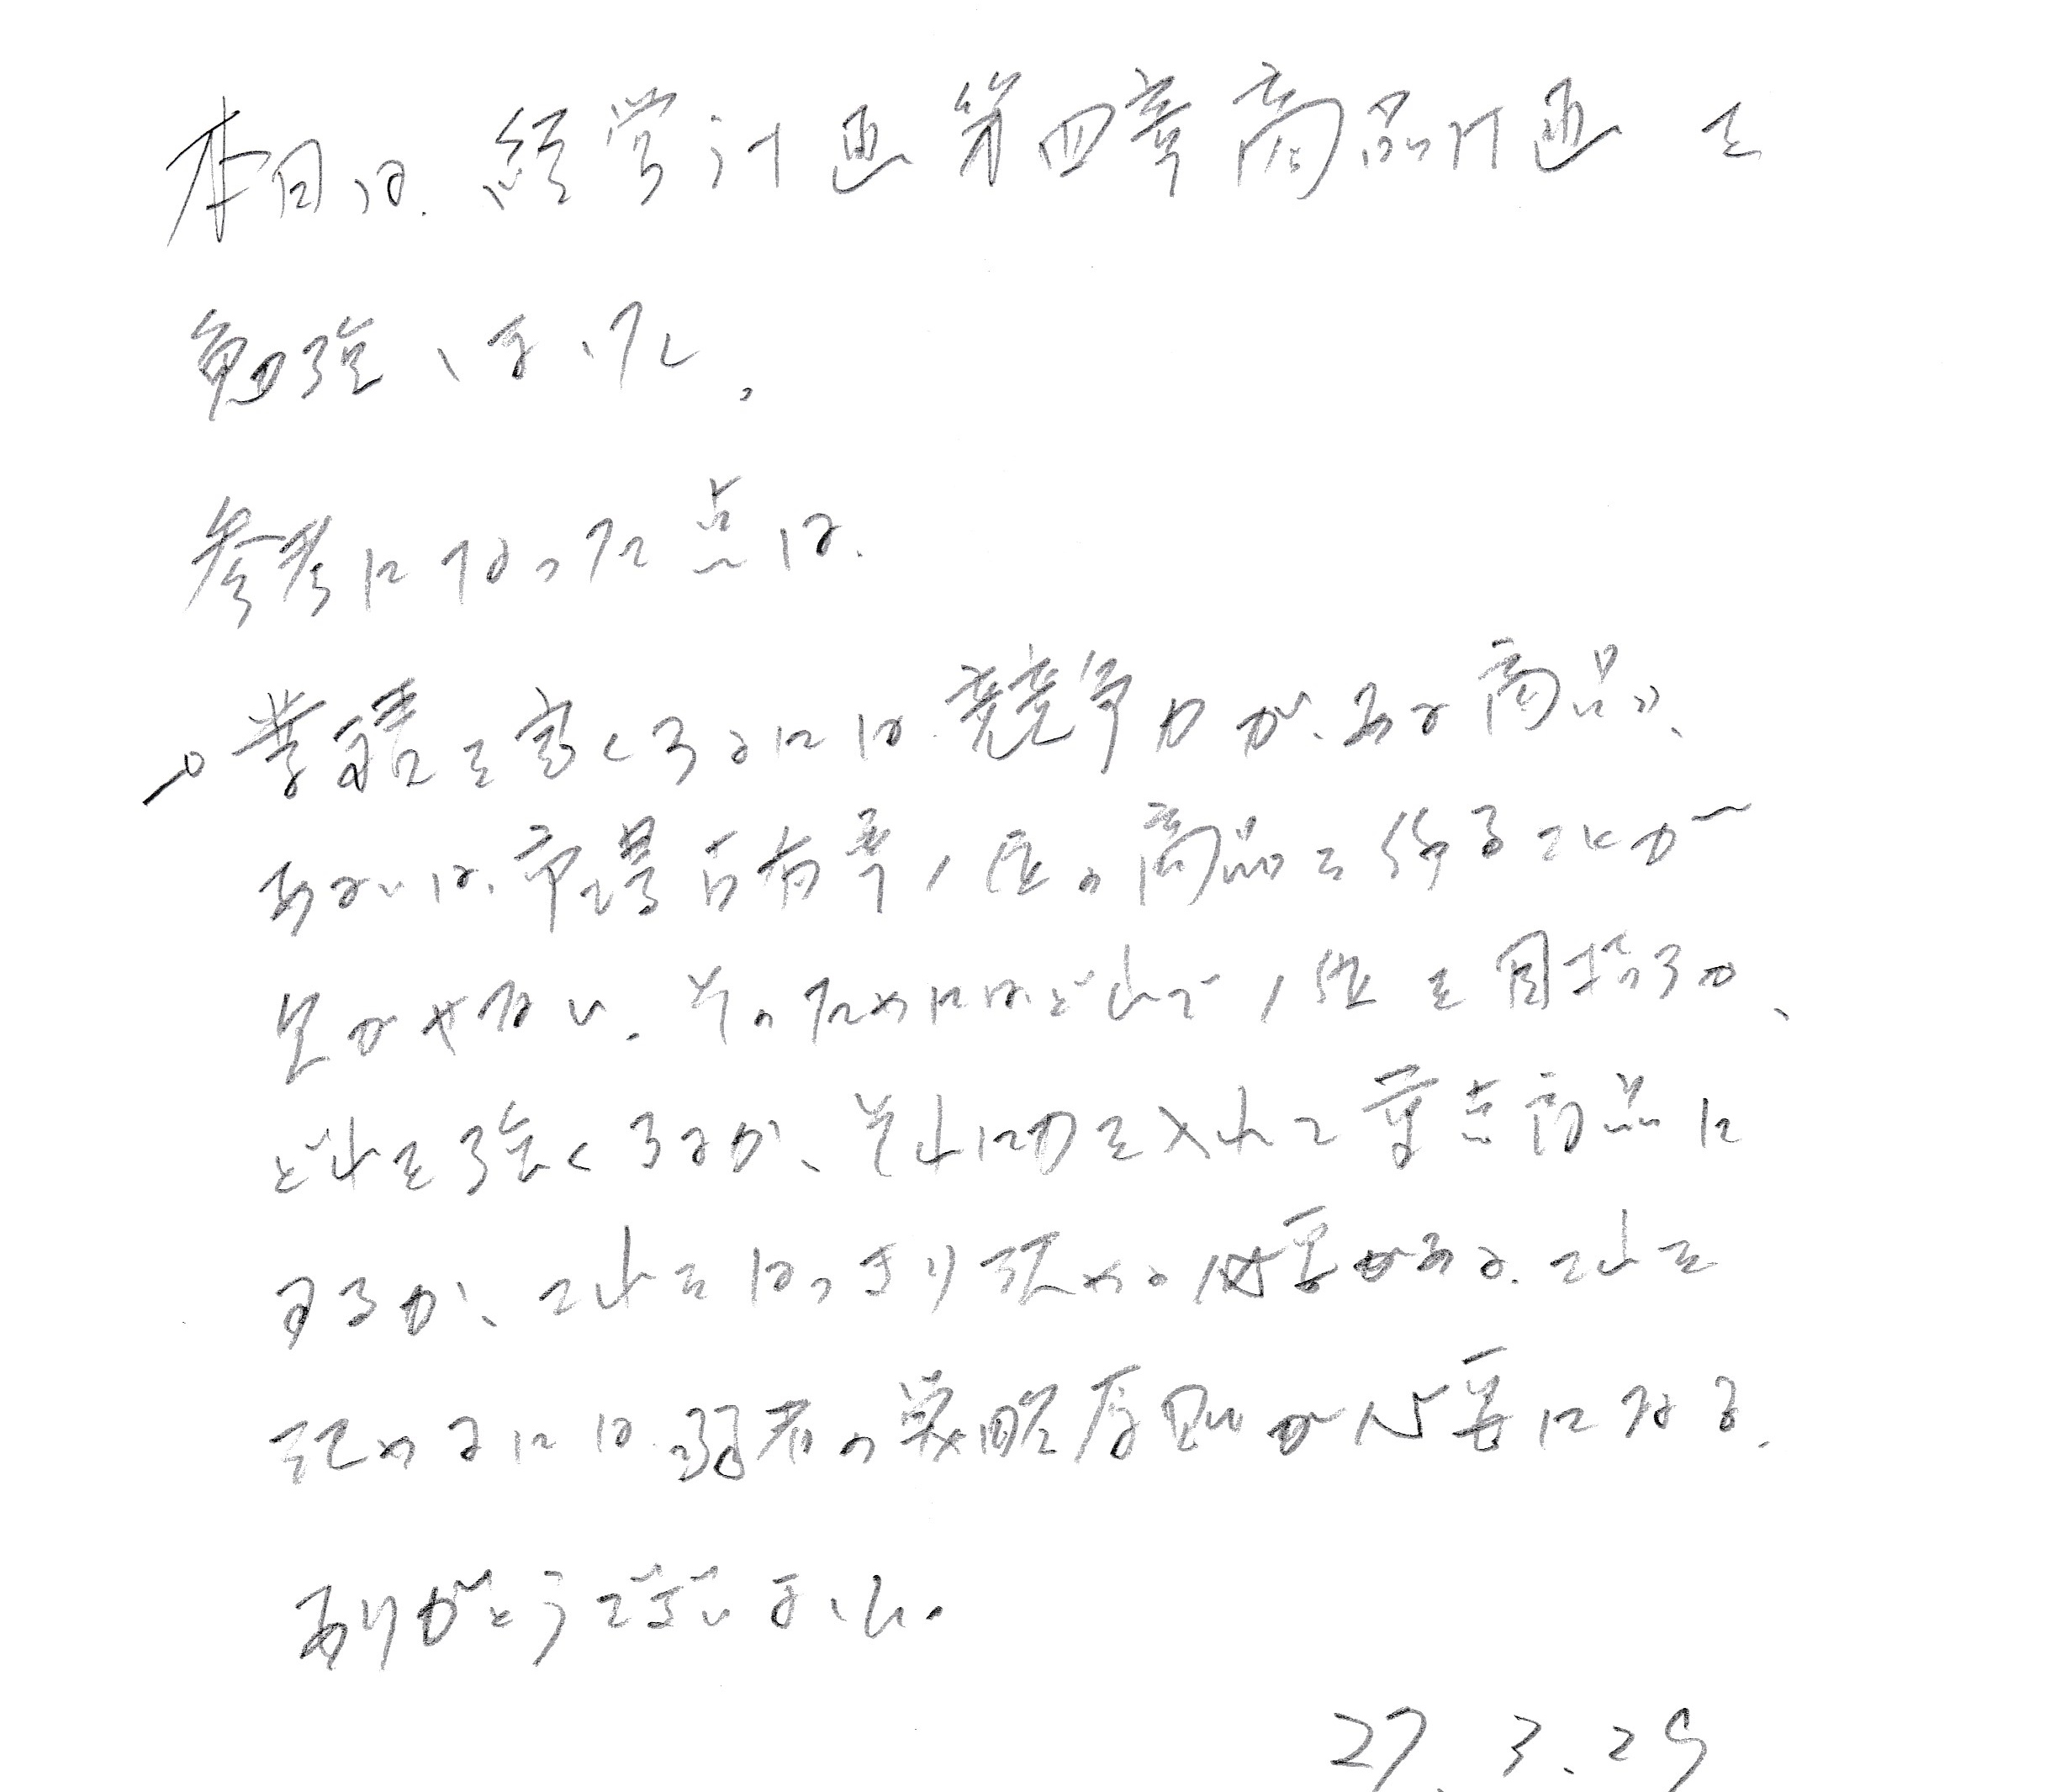 本日は、経営計画第四章商品計画を
勉強しました。
参考になった点は、
→○業績を高くするには、競争力がある商品、
あるいは、市場占有率1位の商品を作ることが
欠かせない。そのためにはどれで1位を目指すか、
どれを強くするか、それに力を入れて重点商品に
するか、これをはっきり決める必要がある。これを
決めるには、弱者の戦略原則が必要になる。
ありがとうございました。
27.3.29